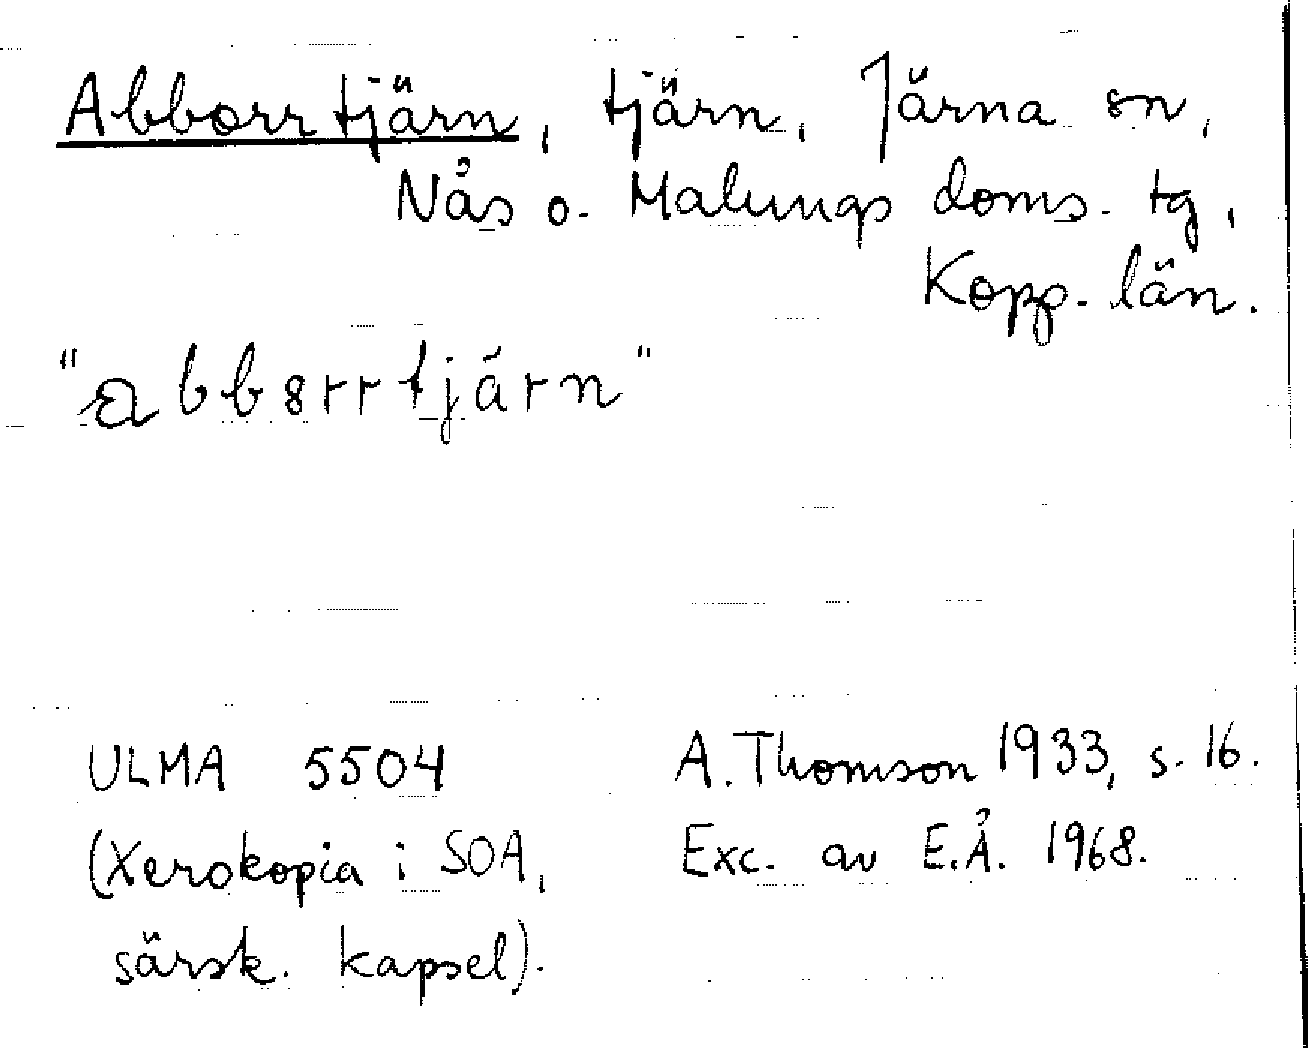 Abborrtjärn, tjärn, Järna sn,
Nås o. Malungs doms. tg,
Kopp. län.
"abb8rrtjärn"
ULMA 5504
(Xerokopia i SOA,
särsk. kapsel).
A. Thomson 1933, s. 16.
Exc. av E.Å. 1968.